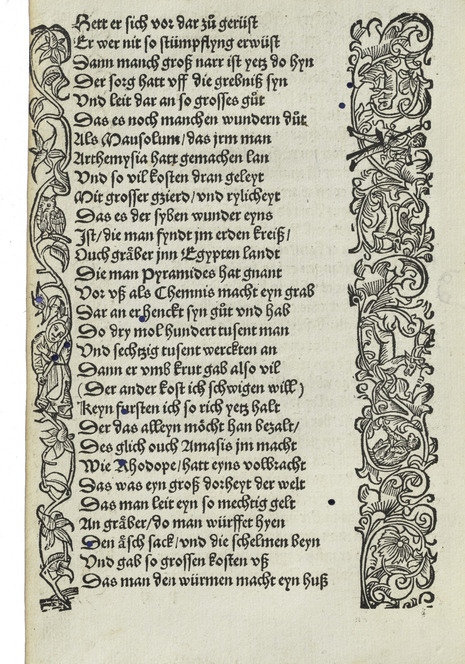 Hett er sich vor dar zů gerüst
Er wer nit so stümpflyng erwüst
Dann manch groß narr ist yetz do hyn
Der sorg hatt vff die grebniß syn
Vnd leit dar an so grosses gůt
Das es noch manchen wundern důt
Als Mausolum / das jrm man
Arthemysia hatt gemachen lan
Vnd so vil kosten dran geleyt
Mit grosser gzierd / vnd rylicheyt
Das es der syben wunder eyns
Ist / die man fyndt jm erden kreiß /
Ouch gräber jnn Egypten landt
Die man Pyramides hat gnant
Vor vß als Chemnis macht eyn grab
Dar an er henckt syn gůt vnd hab
Do dry mol hundert tusent man
Vnd sechtzig tusent werckten an
Dann er vmb krut gab also vil
(Der ander kost ich schwigen will)
Keyn fürsten ich so rich yetz halt
Der das alleyn möcht han bezalt /
Des glich ouch Amasis jm macht
Wie Rhodope / hatt eyns volbracht
Das was eyn groß dorheyt der welt
Das man leit eyn so mechtig gelt
An gräber / do man würffet hyen
Den äsch sack / vnd die schelmen beyn
Vnd gab so grossen kosten vß
Das man den würmen macht eyn huß